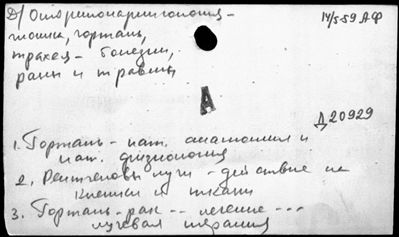 Д/ Оториноларингология -
глотка, гортань,
трахея - болезни,
раны и травмы
14/5-59 АФ
А
Д20929
1. Гортань - пат. анатомия и
пат. физиология
2. Рентгеновы лучи - действие на
клетки и ткани
3. Гортань - рак -- лечение ---
лучевая терапия